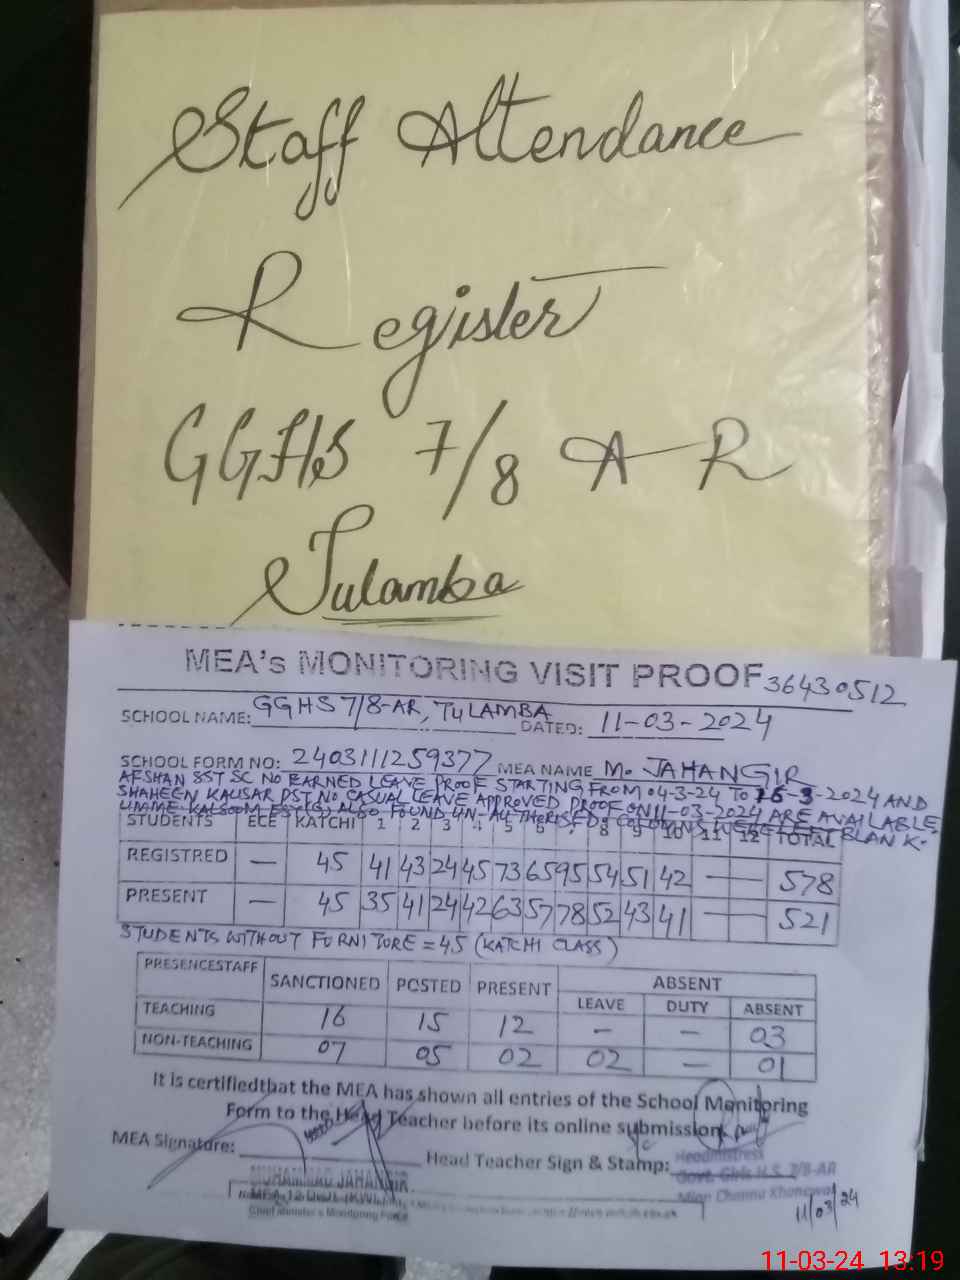 Staff Attendance
Register
GGHS 7/8 A-R
Tulamba
MEA's MONITORING VISIT PROOF 36430512
SCHOOL NAME: GGHS 7/8-AR, TULAMBA DATED: 11-03-2024
SCHOOL FORM NO: 2403111259377 MEA NAME M. JAHANGIR
AFSHAN SST SC NO EARNED LEAVE PROOF STARTING FROM 04-3-24 TO 16-3-2024 AND
SHAHEEN KAUSAR PST NO CASUAL LEAVE APPROVED PROOF ON 11-03-2024 ARE AVAILABLE.
UMME KALSOOM ALSO FOUND UN-AUTHERISED. COLOUMNS WERE LEFT BLANK.
STUDENTS ECE KATCHI 1 2 3 4 5 6 7 8 9 10 11 12 TOTAL
REGISTRED — 45 41 43 24 45 73 65 95 54 51 42 — — 578
PRESENT — 45 35 41 24 42 63 57 78 52 43 41 — — 521
STUDENTS WITHOUT FURNITURE = 45 (KATCHI CLASS)
PRESENCESTAFF SANCTIONED POSTED PRESENT ABSENT
LEAVE DUTY ABSENT
TEACHING 16 15 12 - - 03
NON-TEACHING 07 05 02 02 — 01
It is certifiedthat the MEA has shown all entries of the School Monitoring
Form to the Head Teacher before its online submission.
MEA Signature: Head Teacher Sign & Stamp:
Headmistress
Govt. Girls H.S. 7/8-AR
Mian Channu Khanewal
MUHAMMAD JAHANGIR
Chief Minister's Monitoring Force
11/03/24
11-03-24 13:19